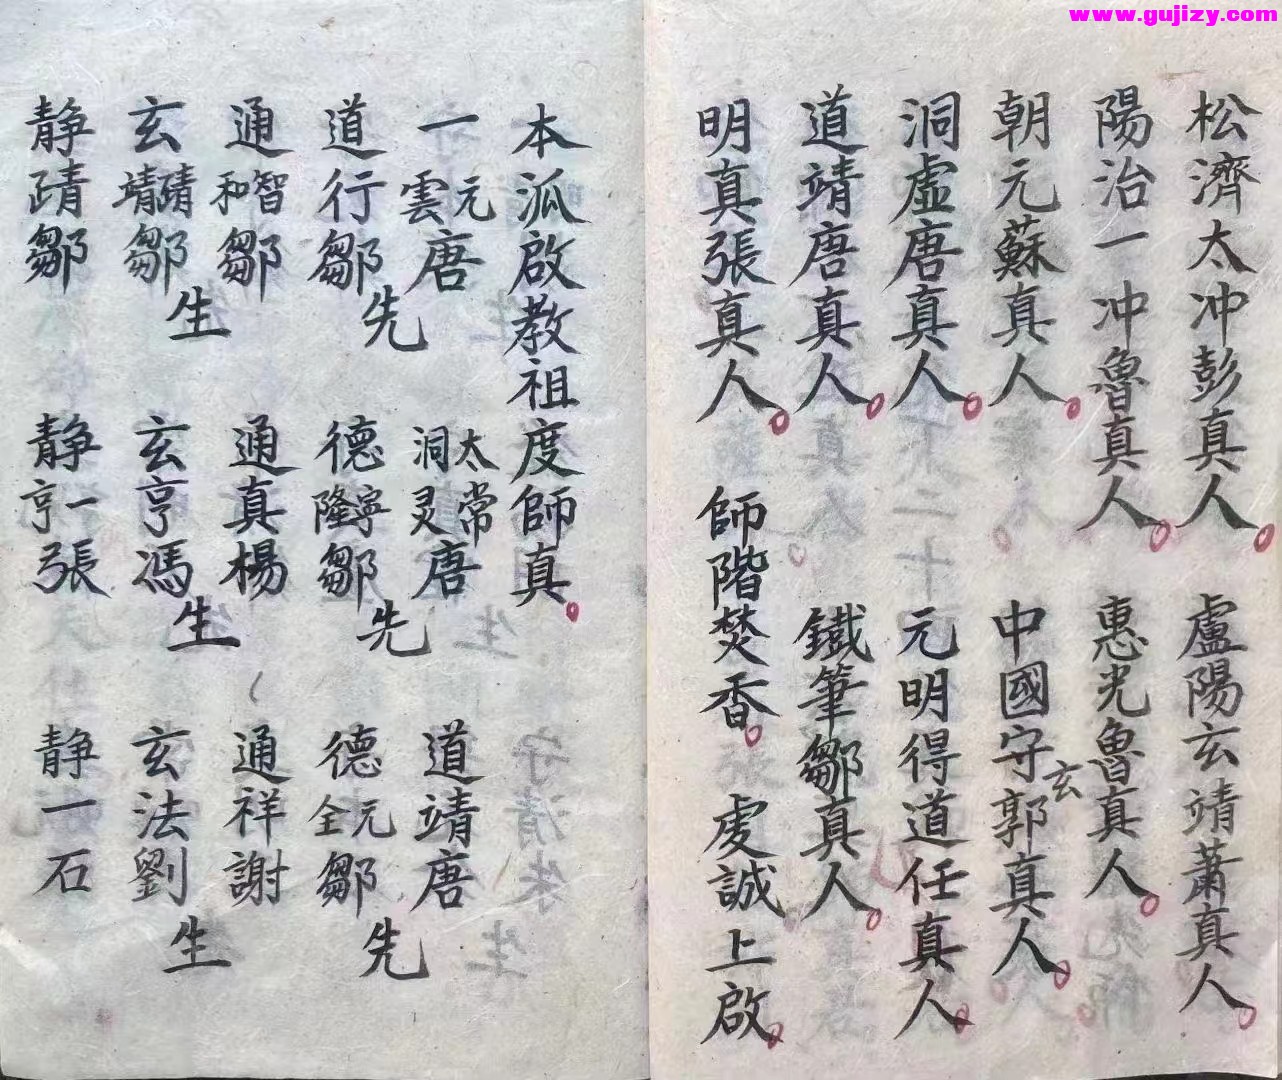 www.gujizy.com
松濟太冲彭真人。盧陽玄靖蕭真人。
陽治一冲魯真人。惠光魯真人。
朝元蘇真人。中國守玄郭真人。
洞虛唐真人。元明得道任真人。
道靖唐真人。鐵筆鄒真人。
明真張真人。師階焚香。虔誠上啟。
本泒啟教祖度師真。
一元雲唐 太常洞灵唐 道靖唐
道行鄒 德寧隆鄒 德元全鄒
先 先 先
通智和鄒 通真楊 通祥謝
玄靖鄒 玄亨馮 玄法劉
生 生 生
静鄒 静一亨張 静一石